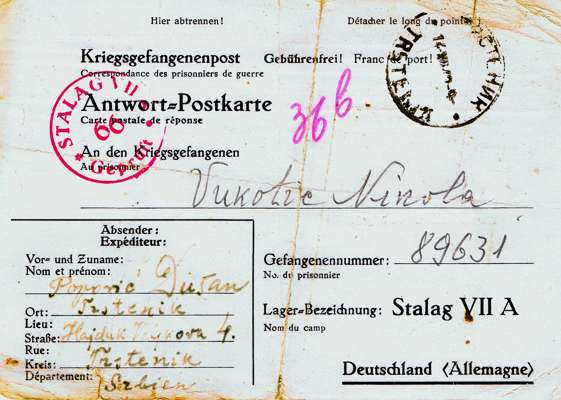 Hier abtrennen! Détacher le long du pointé!
Kriegsgefangenenpost Gebührenfrei! Franc de port!
Correspondance des prisonniers de guerre
STALAG VII A
66
Geprüft
ТРСТЕНИК
TRSTENIK
Antwort=Postkarte
Carte postale de réponse
36b
An den Kriegsgefangenen
Au prisonnier
Vukotic Nikola
Absender:
Expéditeur:
Vor- und Zuname:
Nom et prénom:
Popović Dušan
Ort: Trstenik
Lieu:
Straße: Hajduk Veljkova 4.
Rue:
Kreis: Trstenik
Département:
Serbien
Gefangenennummer: 89631
No. du prisonnier
Lager=Bezeichnung: Stalag VII A
Nom du camp
Deutschland (Allemagne)